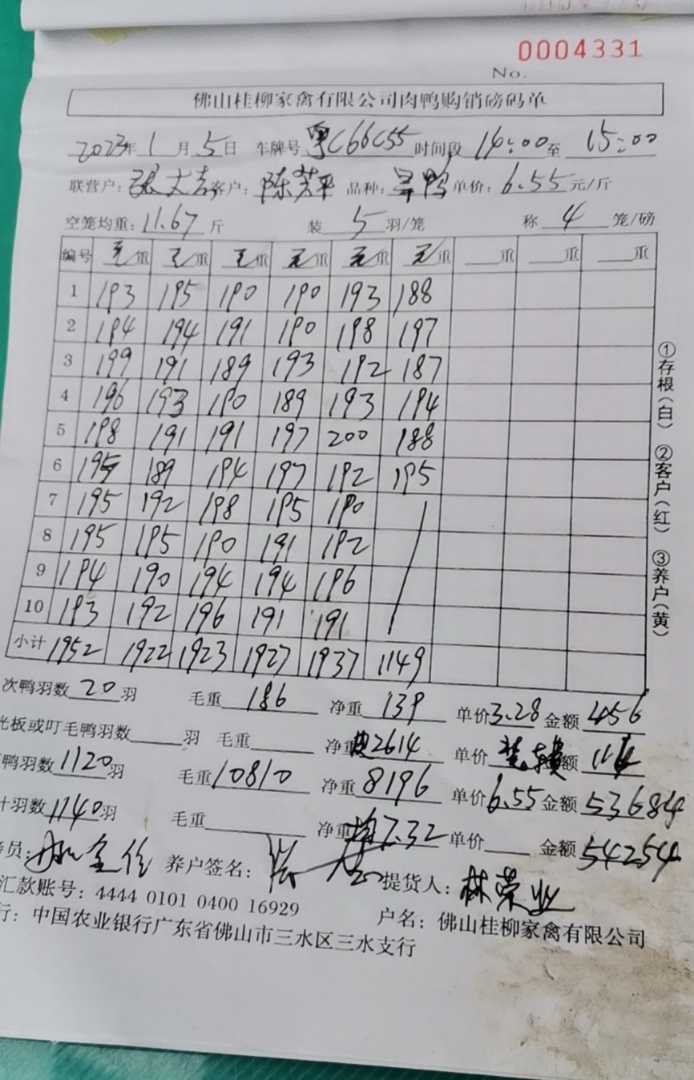 No. 0004331
佛山桂柳家禽有限公司肉鸭购销磅码单
2023年1月5日 车牌号 粤C66C55 时间段 14:00 至 15:00
联营户: 张 客户: 陈 品种: 鸭 单价: 6.55 元/斤
空笼均重: 11.67 斤 装 5 羽/笼 称 4 笼/磅
编号 毛重 毛重 毛重 毛重 毛重 毛重 重 重 重
1 193 195 190 190 193 188
2 194 194 191 190 198 197
3 199 191 189 193 192 187
4 196 193 190 189 193 194
5 198 191 191 197 200 188
6 195 189 194 197 192 195
7 195 192 198 195 190
8 195 195 190 191 192
9 194 190 194 194 196
10 193 192 196 191 191
小计 1952 1922 1923 1927 1937 1149
次鸭羽数 20 羽 毛重 186 净重 139 单价 3.28 金额 456
光板或叮毛鸭羽数 羽 毛重 净重 2614 单价 额 114
鸭羽数 1120 羽 毛重 10810 净重 8196 单价 6.55 金额 53684
计羽数 1140 羽 毛重 净重 7.32 单价 金额 54254
员: 养户签名: 提货人: 林荣业
汇款账号: 4444 0101 0400 16929 户名: 佛山桂柳家禽有限公司
行: 中国农业银行广东省佛山市三水区三水支行
①存根(白) ②客户(红) ③养户(黄)